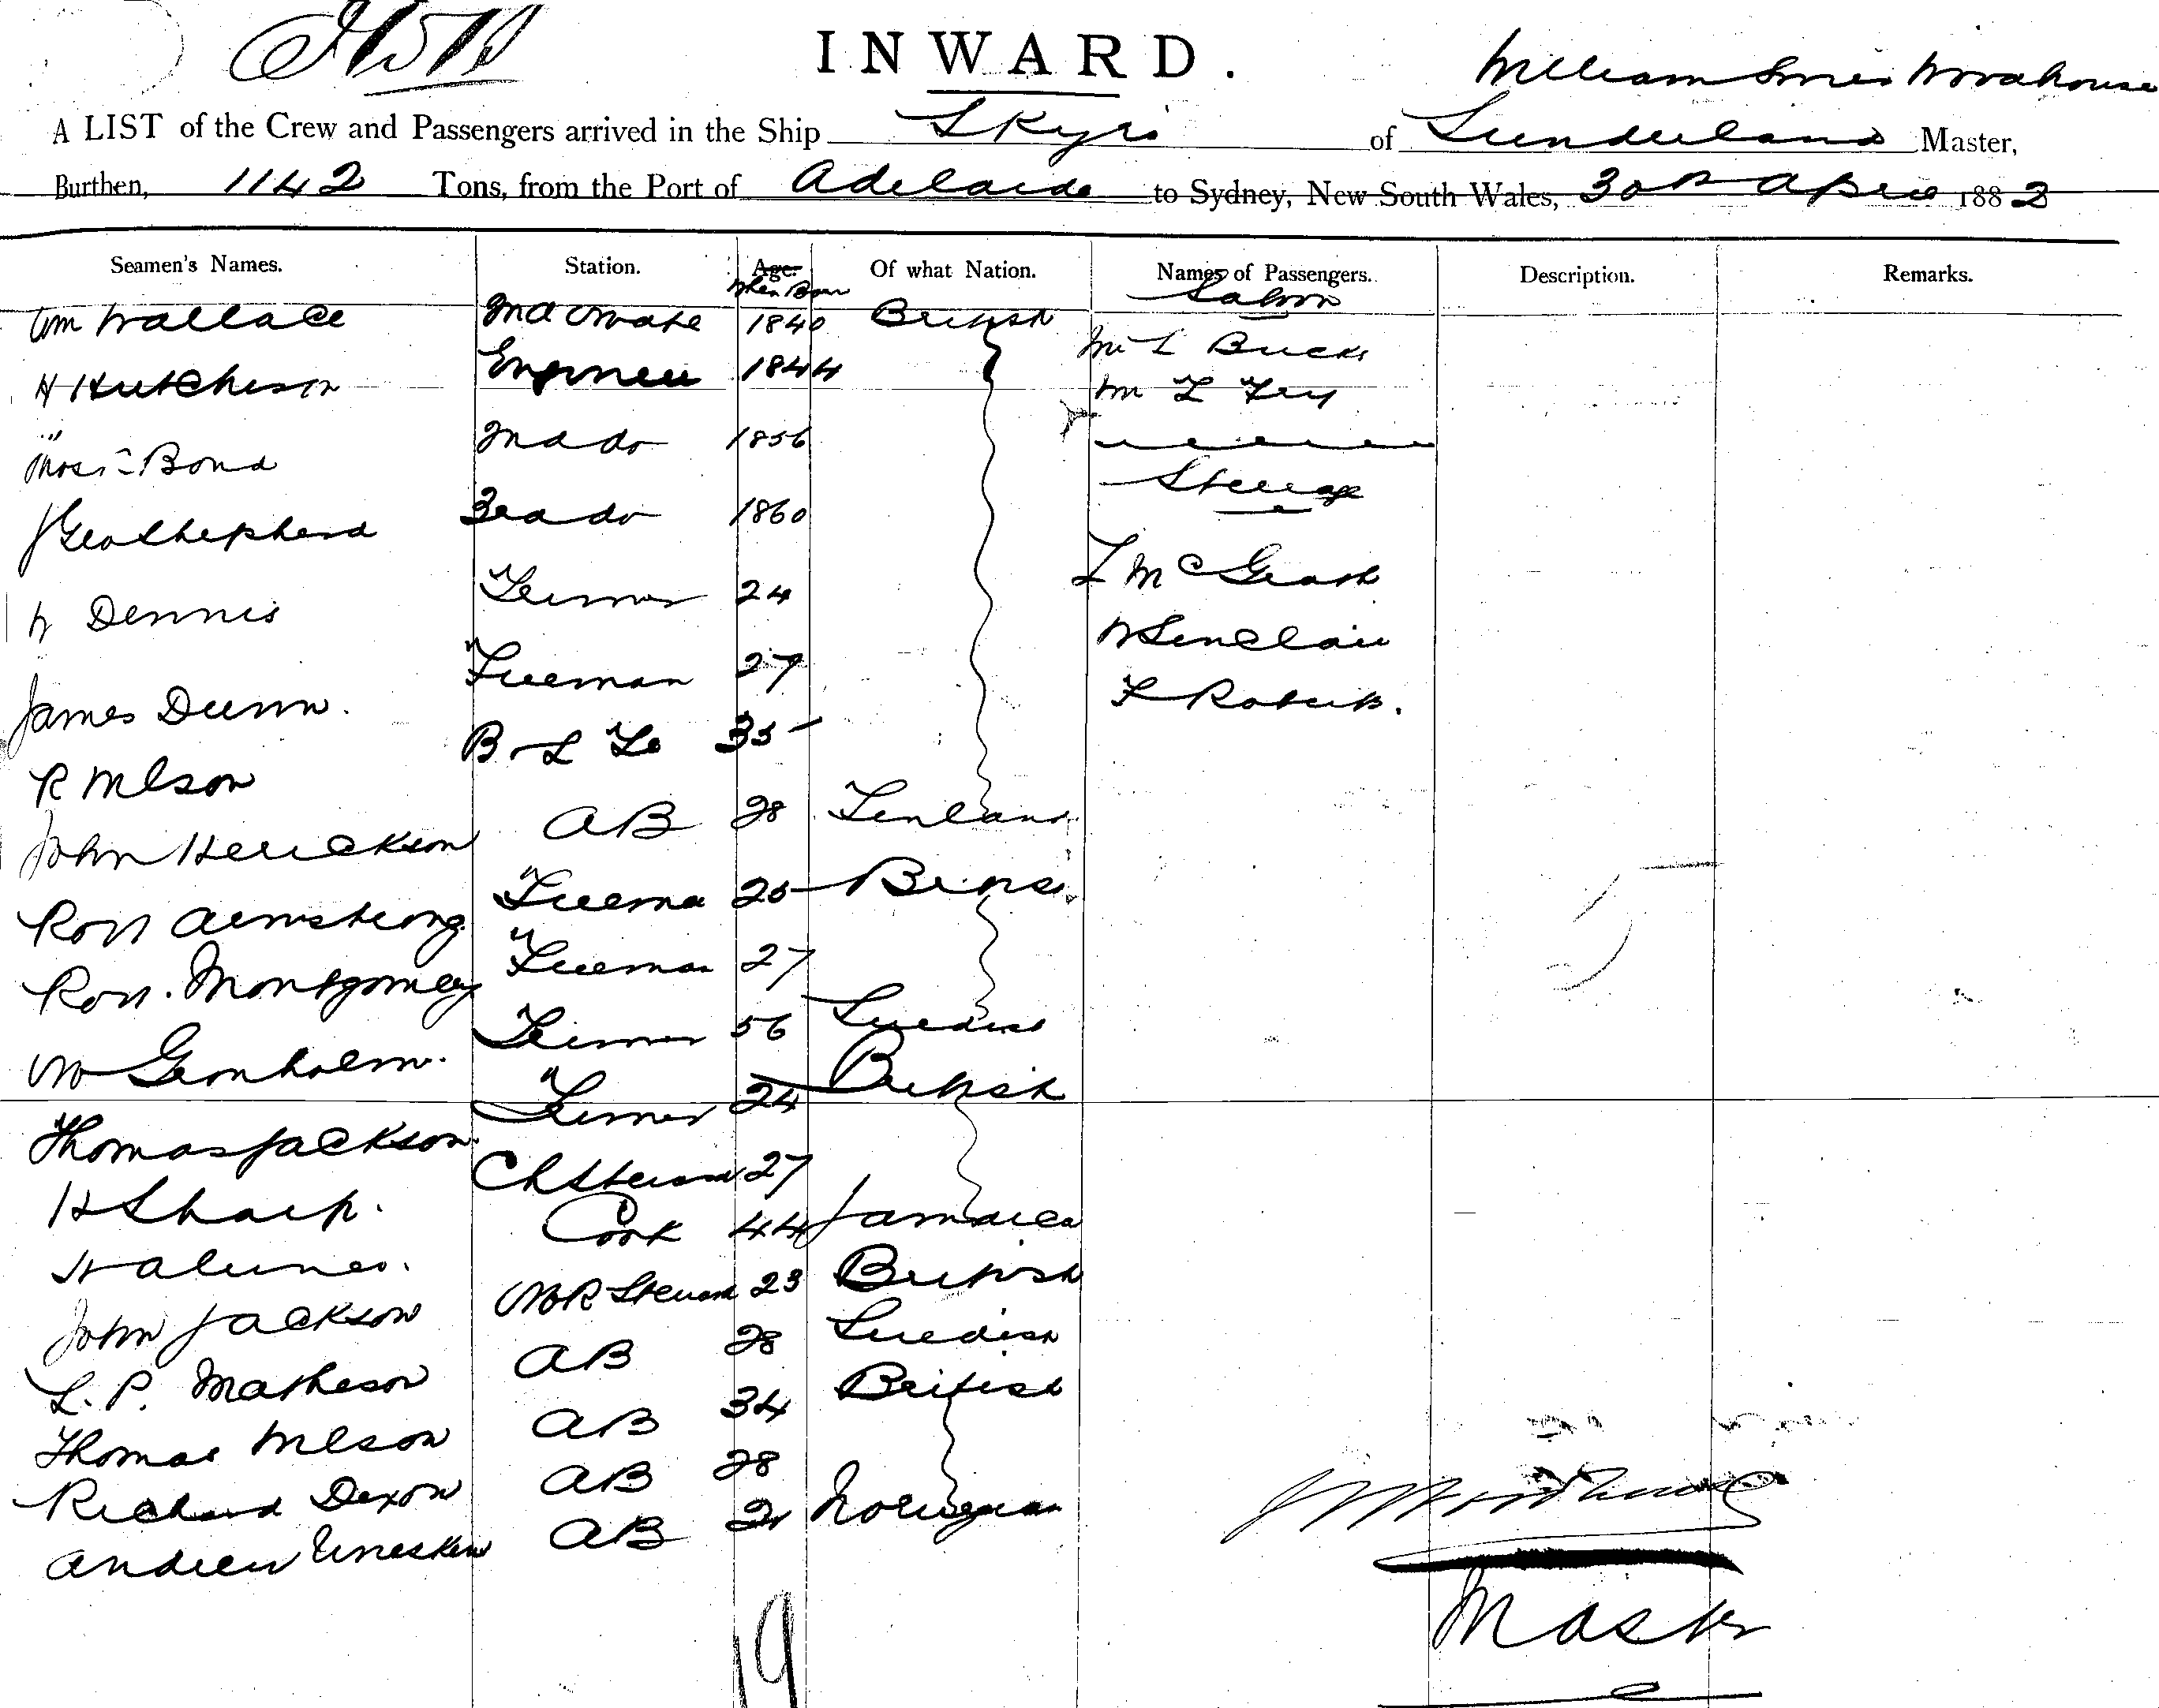 INWARD.
William Woodhouse
A LIST of the Crew and Passengers arrived in the Ship Skyro of Sunderland Master,
Burthen, 1142 Tons, from the Port of Adelaide to Sydney, New South Wales, 30th April 1882
Seamen's Names. Station. Age. Of what Nation. Names of Passengers. Description. Remarks.
When Born
Saloon
Wm Wallace 2nd Mate 1840 British
Mr L Buck
H Hutcheson Engineer 1844
Mr L Fry
Thos Bond 2nd do 1856
Steerage
Geo Shepherd 3rd do 1860
McGrath
W Dennis Trimmer 24
W Sinclair
James Dunn. Fireman 27
F Roberts.
R Wilson 35
John Herickson AB 28 Finland
Robt Armstrong Fireman 25 British
Robt. Montgomery Fireman 27
Gronholm. Trimmer 56 Swedish
Thomas Jackson Trimmer 24 British
H Sharp. Ch Steward 27
Cook 44 Jamaica
John Jackson M R Steward 23 British
L. P. Matheson AB 28 Swedish
Thomas Wilson AB 34 British
Richard Dixon AB 28
Andrew AB 21 Norwegian
Woodhouse
Master
19